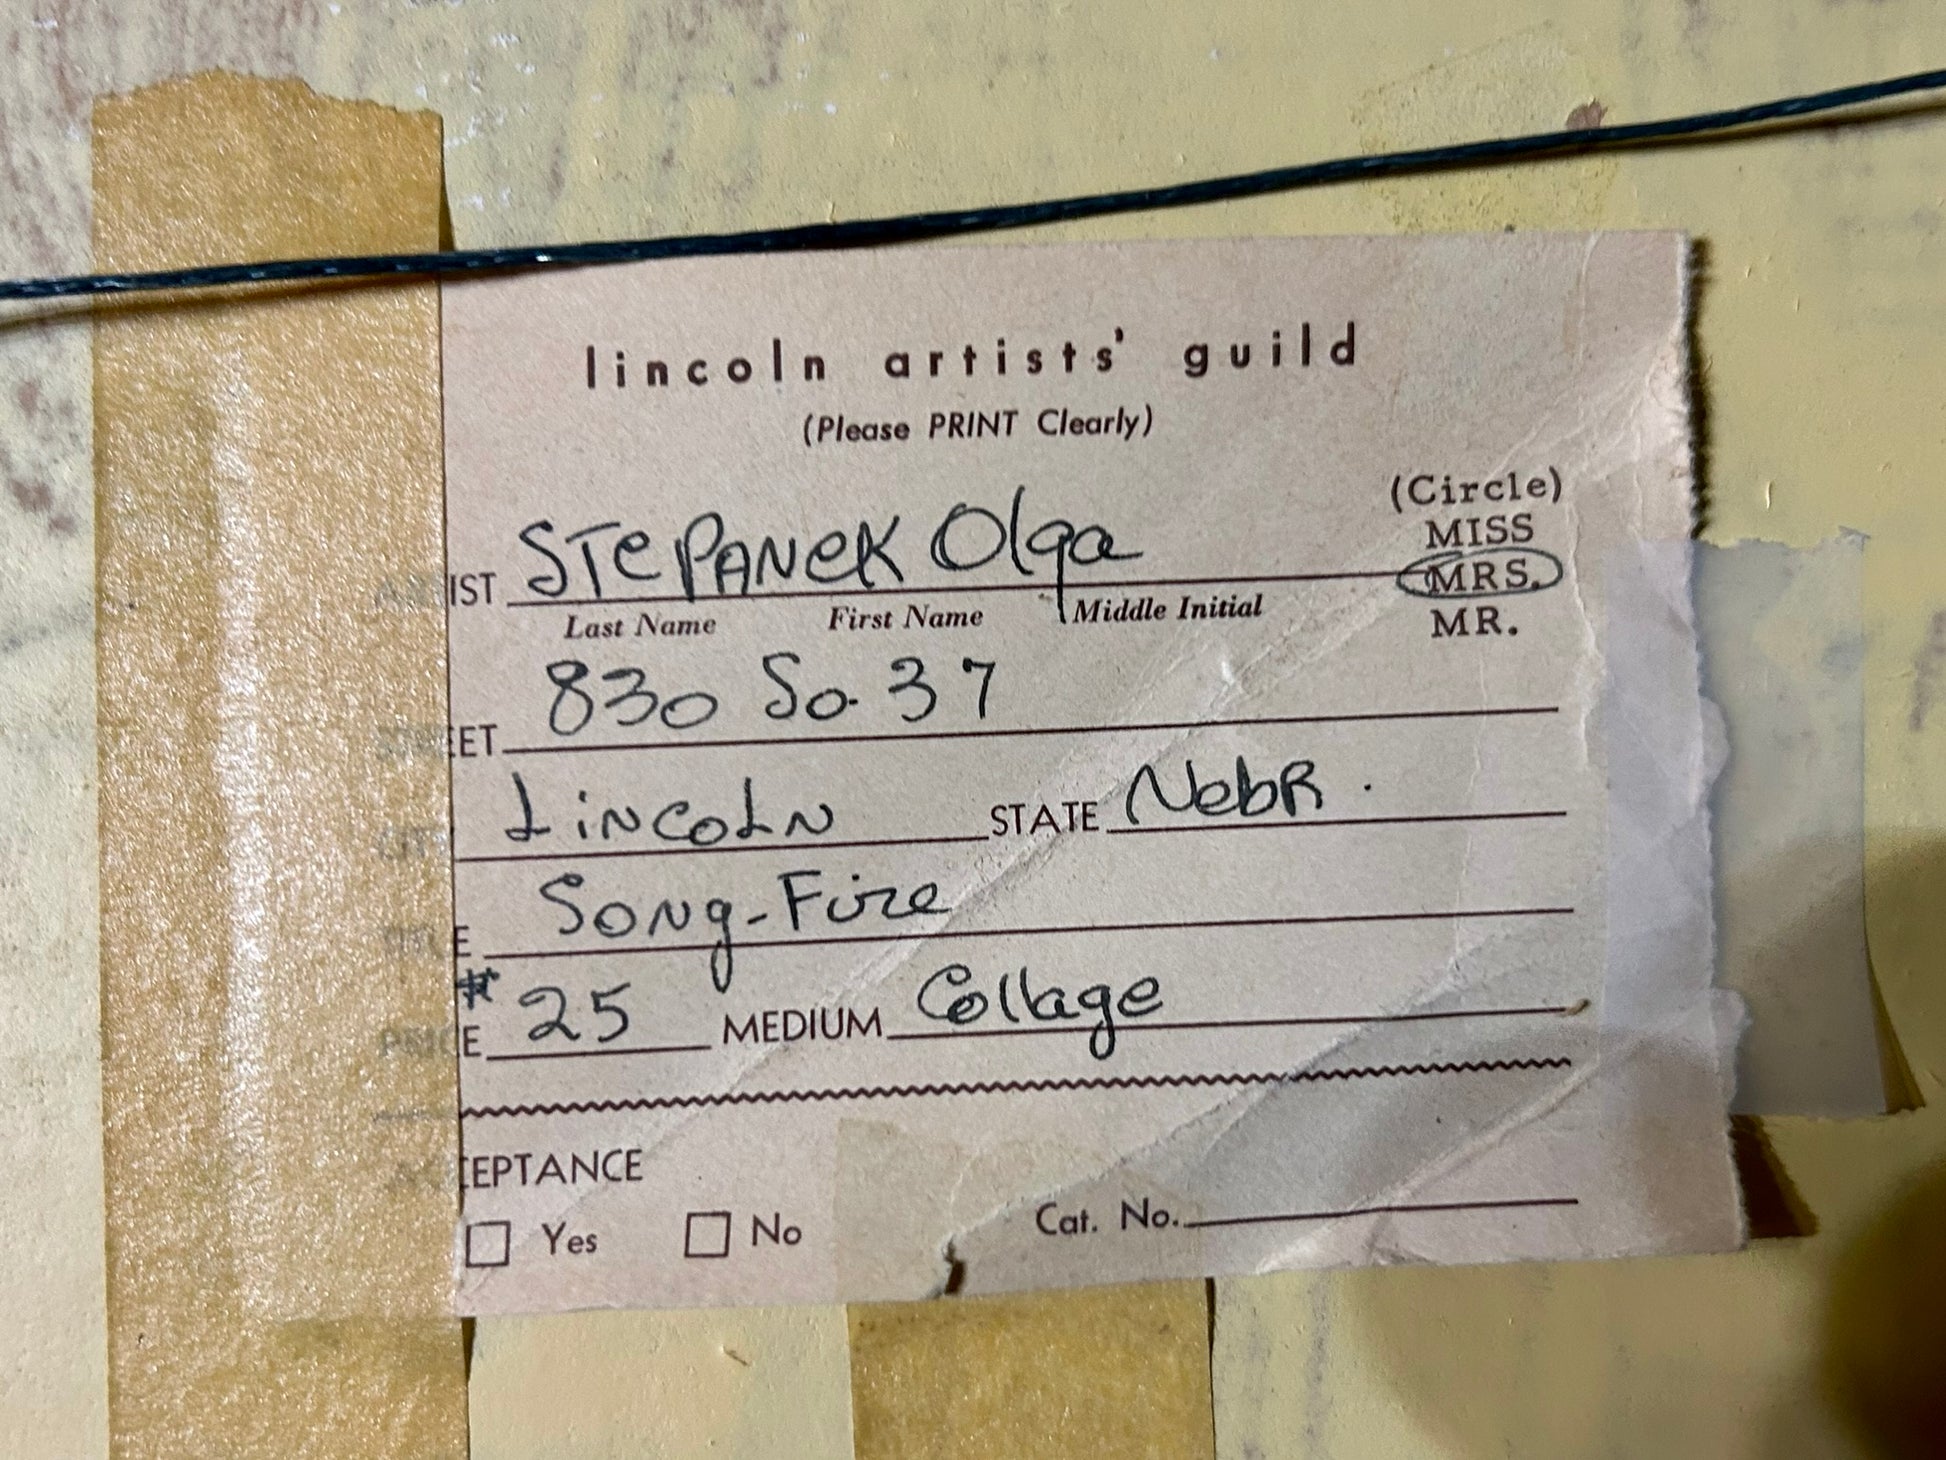 lincoln artists' guild
(Please PRINT Clearly)
(Circle)
MISS
ARTIST STEPANEK Olga MRS.
Last Name First Name Middle Initial MR.
STREET 830 So. 37
CITY LINCOLN STATE Nebr.
TITLE Song-Fire
PRICE $25 MEDIUM Collage
ACCEPTANCE
Yes No Cat. No.